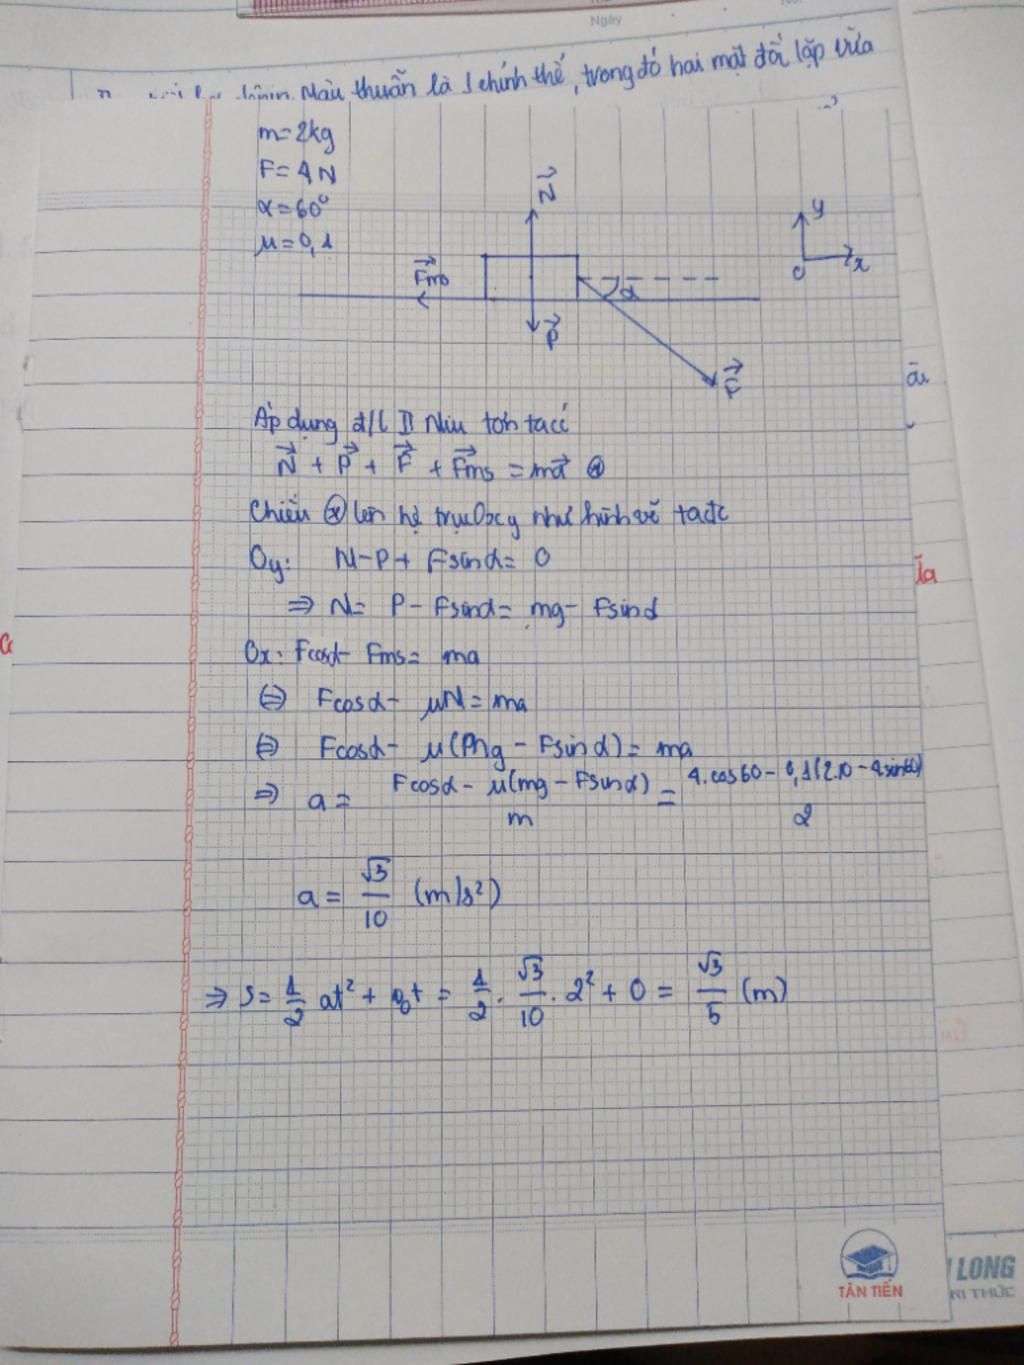 Ngày
Mâu thuẫn là 1 chỉnh thể, trong đó hai mặt đối lập vừa
m=2kg
F=4N
α=60°
μ=0,1
N
y
Fms
α
O
x
P
F
Áp dụng đ/l II Niu tơn ta có
N + P + F + Fms = ma (*)
Chiếu (*) lên hệ trục Oxy như hình vẽ ta đc
Oy: N-P+ Fsinα= 0
⇒ N= P - Fsinα= mg- Fsinα
Ox: Fcosα- Fms= ma
⇔ Fcosα- μN= ma
⇔ Fcosα- μ(mg - Fsinα)= ma
⇒ a= Fcosα - μ(mg - Fsinα) / m = 4.cos60 - 0,1(2.10 - 4.sin60) / 2
a = √3/10 (m/s²)
⇒ S= 1/2 at² + v₀t = 1/2 . √3/10 . 2² + 0 = √3/5 (m)
TÂN TIẾN
LONG
TRI THỨC